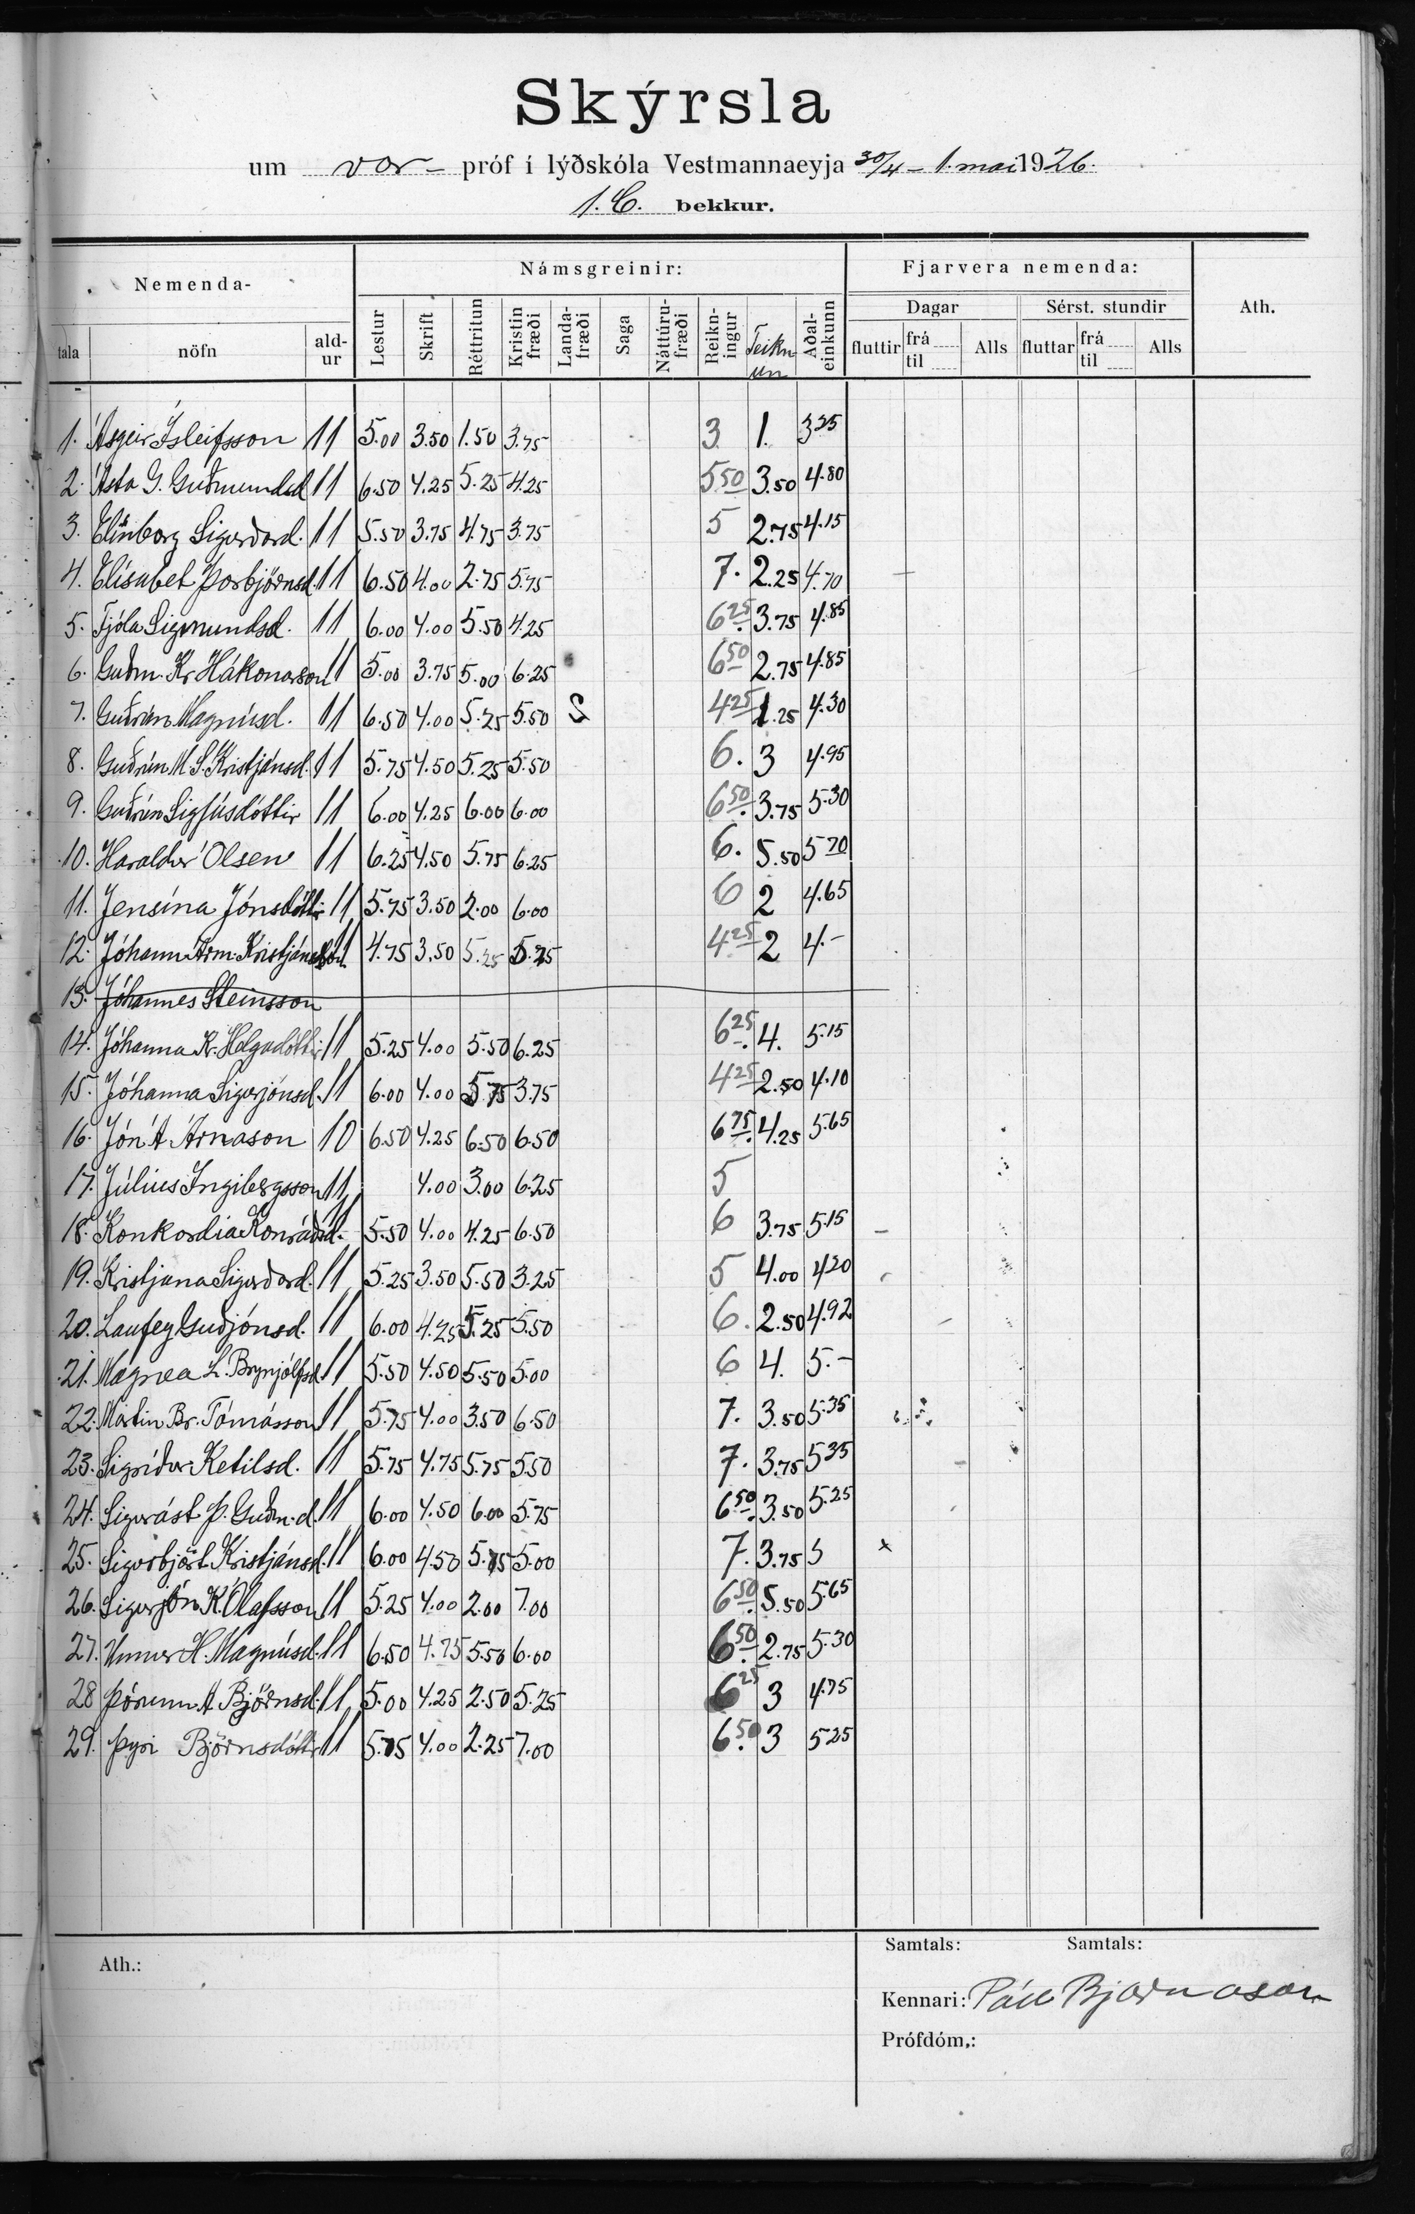 Skýrsla
um vor- próf í lýðskóla Vestmannaeyja 30/4 - 1. mai 1926.
1. C. bekkur.
Nemenda- Námsgreinir: Fjarvera nemenda: Ath.
Dagar Sérst. stundir
tala nöfn ald-ur Lestur Skrift Réttritun Kristin fræði Landa-fræði Saga Náttúru-fræði Reikn-ingur Teikn-un Aðal-einkunn fluttir frá til Alls fluttar frá til Alls
1. Ásgeir Ísleifsson 11 5.00 3.50 1.50 3.75 3 1. 3.25
2. Ásta G. Guðmundsd 11 6.50 4.25 5.25 4.25 5.50 3.50 4.80
3. Elínborg Sigurðard. 11 5.50 3.75 4.75 3.75 5 2.75 4.15
4. Elísabet Þorbjörnsd. 11 6.50 4.00 2.75 5.75 7. 2.25 4.70
5. Fjóla Sigmundsd. 11 6.00 4.00 5.50 4.25 6.25 3.75 4.85
6. Guðm. Kr Hákonarson 11 5.00 3.75 5.00 6.25 6.50 2.75 4.85
7. Guðrún Magnúsd. 11 6.50 4.00 5.25 5.50 4.25 1.25 4.30
8. Guðrún M S. Kristjánsd. 11 5.75 4.50 5.25 5.50 6. 3 4.95
9. Guðrún Sigfúsdóttir 11 6.00 4.25 6.00 6.00 6.50 3.75 5.30
10. Haraldur Olsen 11 6.25 4.50 5.75 6.25 6. 5.50 5 70
11. Jensína Jónsdóttir 11 5.75 3.50 2.00 6.00 6 2 4.65
12. Jóhann Árm. Kristjánsson 11 4.75 3.50 5.25 5.25 4.25 2 4.-
13. Jóhannes Steinsson
14. Jóhanna Kr. Helgadóttir 11 5.25 4.00 5.50 6.25 6.25 4. 5.15
15. Jóhanna Sigurjónsd. 11 6.00 4.00 5.75 3.75 4.25 2.50 4.10
16. Jón Á Árnason 10 6.50 4.25 6.50 6.50 6.75 4.25 5.65
17. Júlíus Ingibergsson 11 4.00 3.00 6.25 5
18. Konkordia Konráðsd. 11 5.50 4.00 4.25 6.50 6 3.75 5.15
19. Kristjana Sigurðard. 11 5.25 3.50 5.50 3.25 5 4.00 4.20
20. Laufey Guðjónsd. 11 6.00 4.25 5.25 5.50 6. 2.50 4.92
21. Magnea L. Brynjólfsd. 11 5.50 4.50 5.50 5.00 6 4. 5.-
22. Martin Br. Tómásson 11 5.75 4.00 3.50 6.50 7. 3.50 5.35
23. Sigríður Ketilsd. 11 5.75 4.75 5.75 5.50 7. 3.75 5 35
24. Sigurást Þ. Guðm.d. 11 6.00 4.50 6.00 5.75 6.50 3.50 5.25
25. Sigurbjört Kristjánsd. 11 6.00 4.50 5.75 5.00 7. 3.75 5
26. Sigurjón K. Ólafsson 11 5.25 4.00 2.00 7.00 6.50 5.50 5.65
27. Unnur H. Magnúsd. 11 6.50 4.75 5.50 6.00 6.50 2.75 5.30
28 Þórunn A Björnsd. 11 5.00 4.25 2.50 5.25 6.25 3 4.75
29. Þyri Björnsdóttir 11 5.75 4.00 2.25 7.00 6.50 3 5.25
Ath.:
Samtals: Samtals:
Kennari: Páll Bjarnason
Prófdóm.: